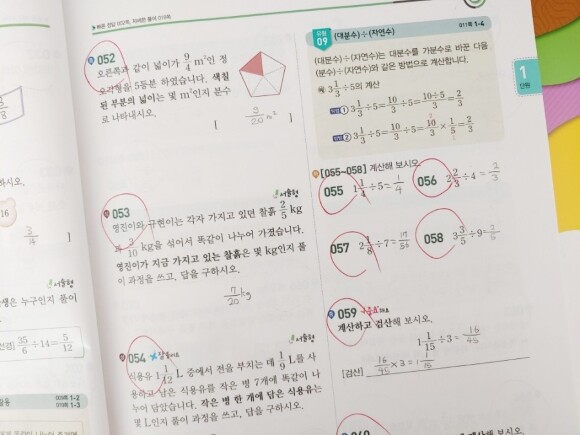 ▶빠른 정답 002쪽, 자세한 풀이 019쪽
052
오른쪽과 같이 넓이가 9/4 m²인 정
오각형을 5등분 하였습니다. 색칠
된 부분의 넓이는 몇 m²인지 분수
로 나타내시오.
[ 9/20 m²
서술형
053
명진이와 규현이는 각자 가지고 있던 찰흙 2/5 kg
과 3/10 kg을 섞어서 똑같이 나누어 가졌습니다.
명진이가 지금 가지고 있는 찰흙은 몇 kg인지 풀
이 과정을 쓰고, 답을 구하시오.
7/20 kg
서술형
054
식용유 1 1/12 L 중에서 전을 부치는 데 1/9 L를 사
용하고 남은 식용유를 작은 병 7개에 똑같이 나
누어 담았습니다. 작은 병 한 개에 담은 식용유는
몇 L인지 풀이 과정을 쓰고, 답을 구하시오.
유형 09 (대분수)÷(자연수)
011쪽 1-4
(대분수)÷(자연수)는 대분수를 가분수로 바꾼 다음
(분수)÷(자연수)와 같은 방법으로 계산합니다.
예 3 1/3÷5의 계산
방법 1 3 1/3÷5=10/3÷5=10÷5/3=2/3
방법 2 3 1/3÷5=10/3÷5=10/3×1/5=2/3
1
단원
[055~058] 계산해 보시오.
055 1 1/4÷5= 1/4
056 2 2/3÷4= 2/3
057 2 1/8÷7= 17/56
058 3 3/5÷9= 2/5
059
계산하고 검산해 보시오.
1 1/15÷3= 16/45
[검산] 16/45 ×3 = 1 1/15
060
16
3/14 ]
하시오.
서술형
생은 누구인지 풀이
선겸] 35/6÷14=5/12
009쪽 1-2
010쪽 1-3